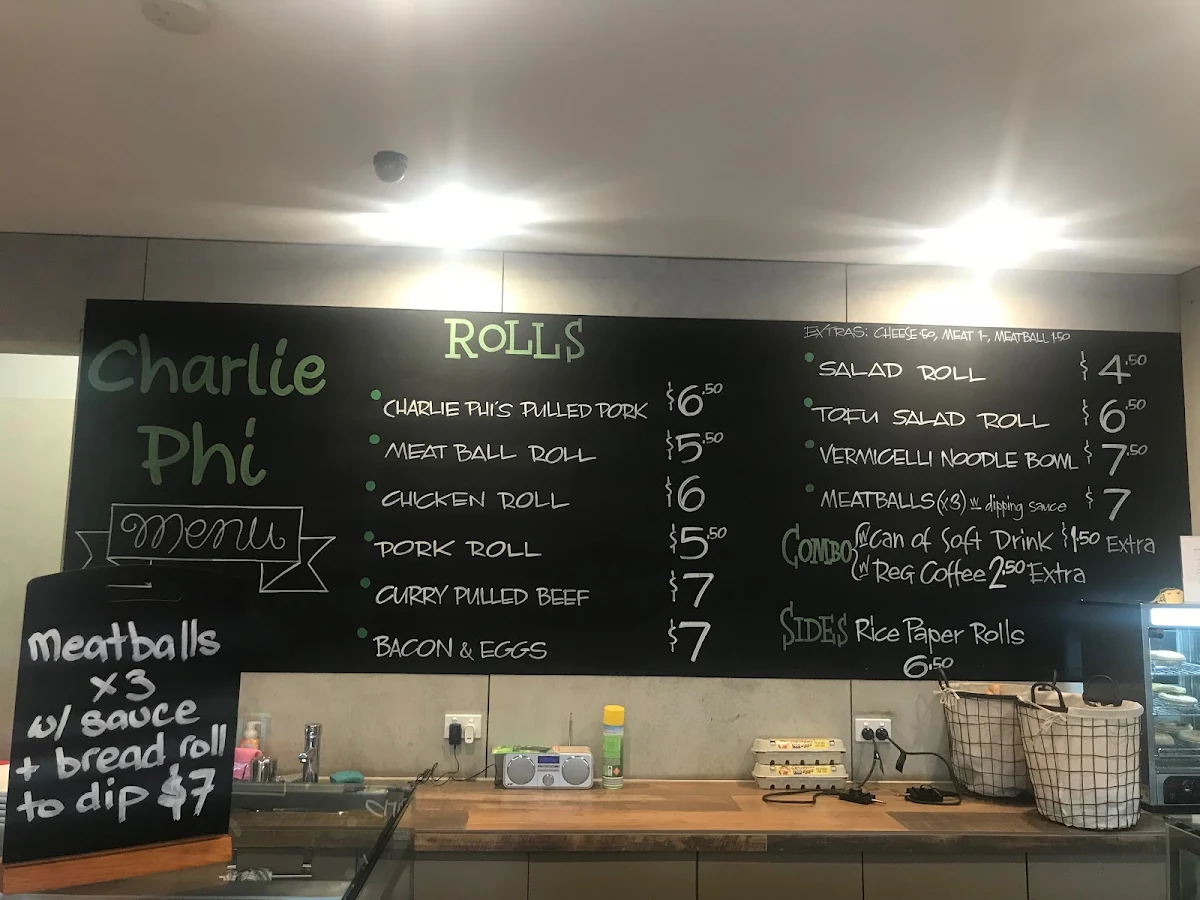 Charlie
Phi
menu
ROLLS
CHARLIE PHI'S PULLED PORK $6.50
MEAT BALL ROLL $5.50
CHICKEN ROLL $6
PORK ROLL $5.50
CURRY PULLED BEEF $7
BACON & EGGS $7
EXTRAS: CHEESE .50, MEAT 1-, MEATBALL 1.50
SALAD ROLL $4.50
TOFU SALAD ROLL $6.50
VERMICELLI NOODLE BOWL $7.50
MEATBALLS (x3) w dipping sauce $7
COMBO w Can of Soft Drink $1.50 Extra
w Reg Coffee 2.50 Extra
SIDES Rice Paper Rolls
6.50
Meatballs
x3
w/ sauce
+ bread roll
to dip $7